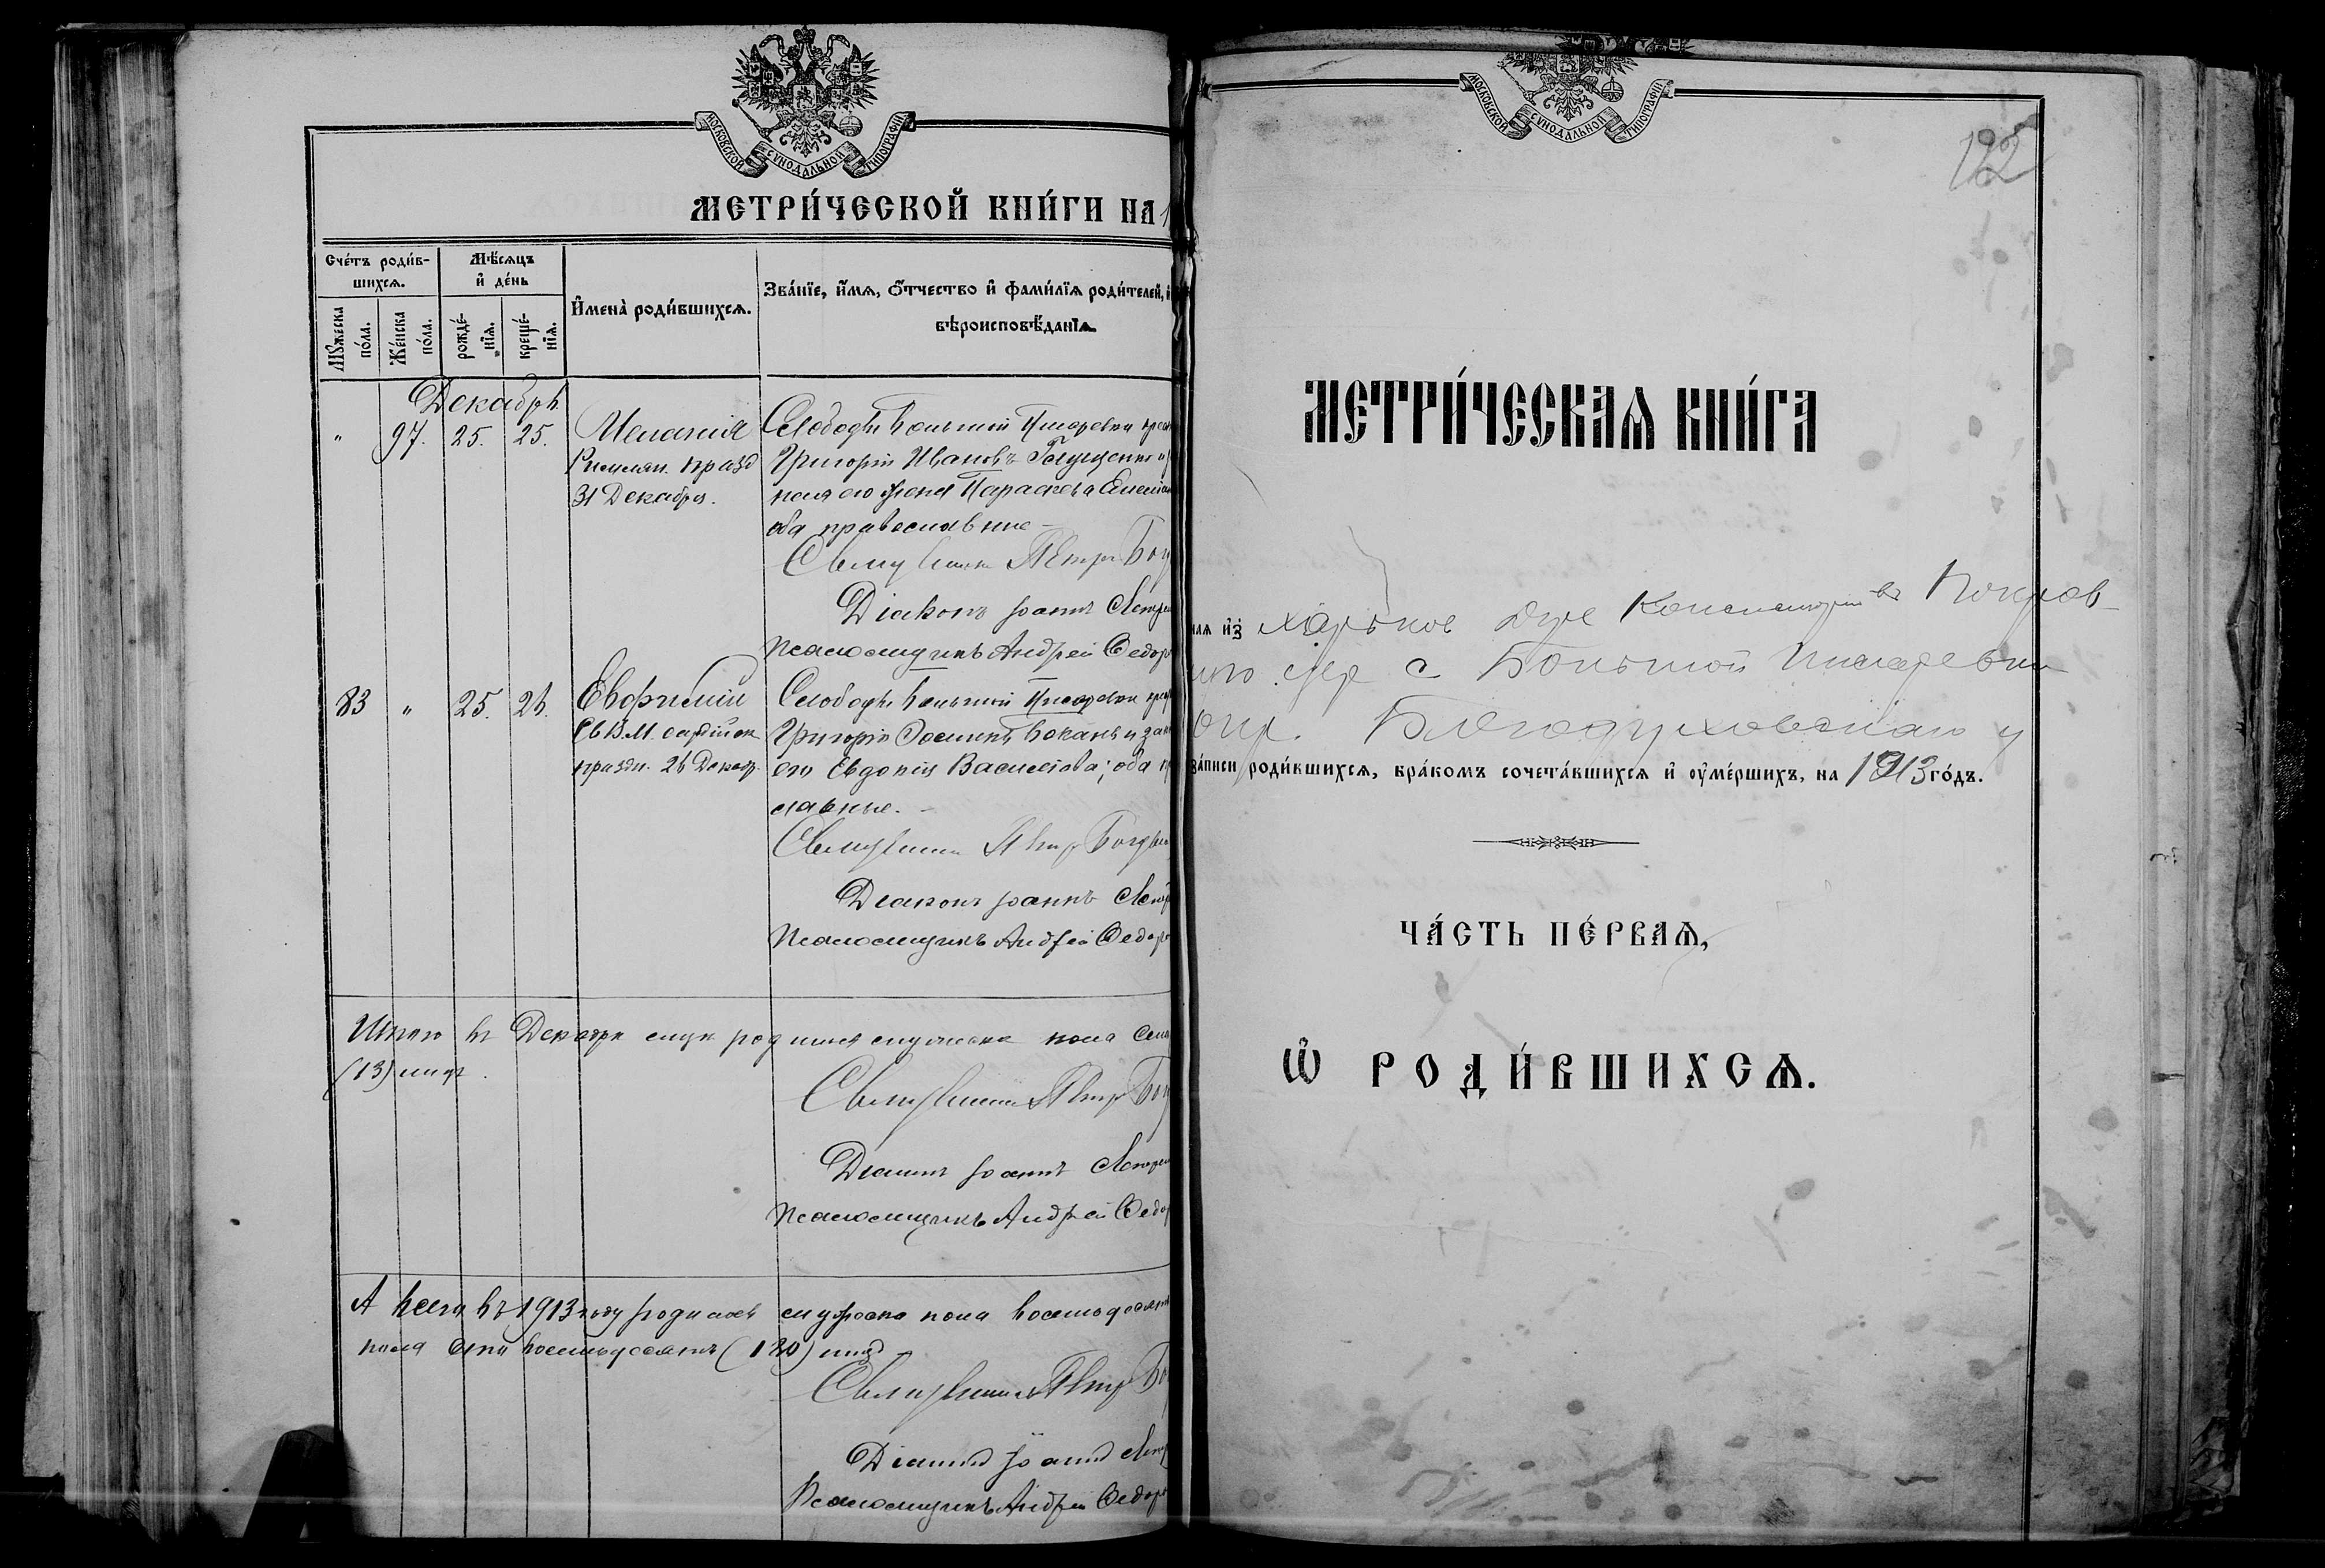 МОСКОВСКОЙ СѴНОДАЛЬНОЙ ТИПОГРАФІИ
МЕТРИ́ЧЕСКОЙ КНИ́ГИ НА 1
Сче́тъ роди́в-
шихсѧ.
Мѹ́жеска по́ла.
Же́нска по́ла.
Мѣ́сѧцъ
и҆ де́нь
рожде́-
нїѧ.
креще́-
нїѧ.
И҆мена̀ роди́вшихсѧ.
Зва́нїе, и҆́мѧ, ѻ҆́тчество и҆ фами́лїѧ роди́телей, и҆
вѣроисповѣ́данїѧ
Декабрь
" 97. 25. 25.
Меланія
Римлян. празд
31 Декабря.
Слободы Большой Писаревки крес
Григорій Ивановъ и
ная его жена Параскева
оба православные
Священникъ Петръ Бог
Діаконъ Іоаннъ
Псаломщикъ Андрей Федор
83 " 25. 26.
Евфимій
Св. В. М. Сардійск
праздн. 26 Декабр.
Слободы Большой Писаревки крес
Григорій и зак
его Евдокія Васильева; оба п
славные.
Священникъ Петръ Богд
Діаконъ Іоаннъ
Псаломщикъ Андрей Федор
Итого въ Декабрѣ мужеска пола
(13)
Священникъ Петръ Бог
Діаконъ Іоаннъ
Псаломщикъ Андрей Федор
А всего въ 1913 году родилось мужеска пола восемьдесят
пола восемьдесятъ (180)
Священникъ Петръ Бо
Діаконъ Іоаннъ
Псаломщикъ Андрей Федор
МОСКОВСКОЙ СѴНОДАЛЬНОЙ ТИПОГРАФІИ
122
МЕТРИ́ЧЕСКАѦ КНИ́ГА
наѧ и҆з̾ Харьков Дух Консисторіи въ Покров
с Большой Писаревки
Богодуховскаго у
за́писи роди́вшихсѧ, бра́комъ сочета́вшихсѧ и҆ ѹ҆ме́ршихъ, на 1913 го́дъ.
ЧА́СТЬ ПЕ́РВАѦ,
Ѽ РОДИ́ВШИХСѦ.